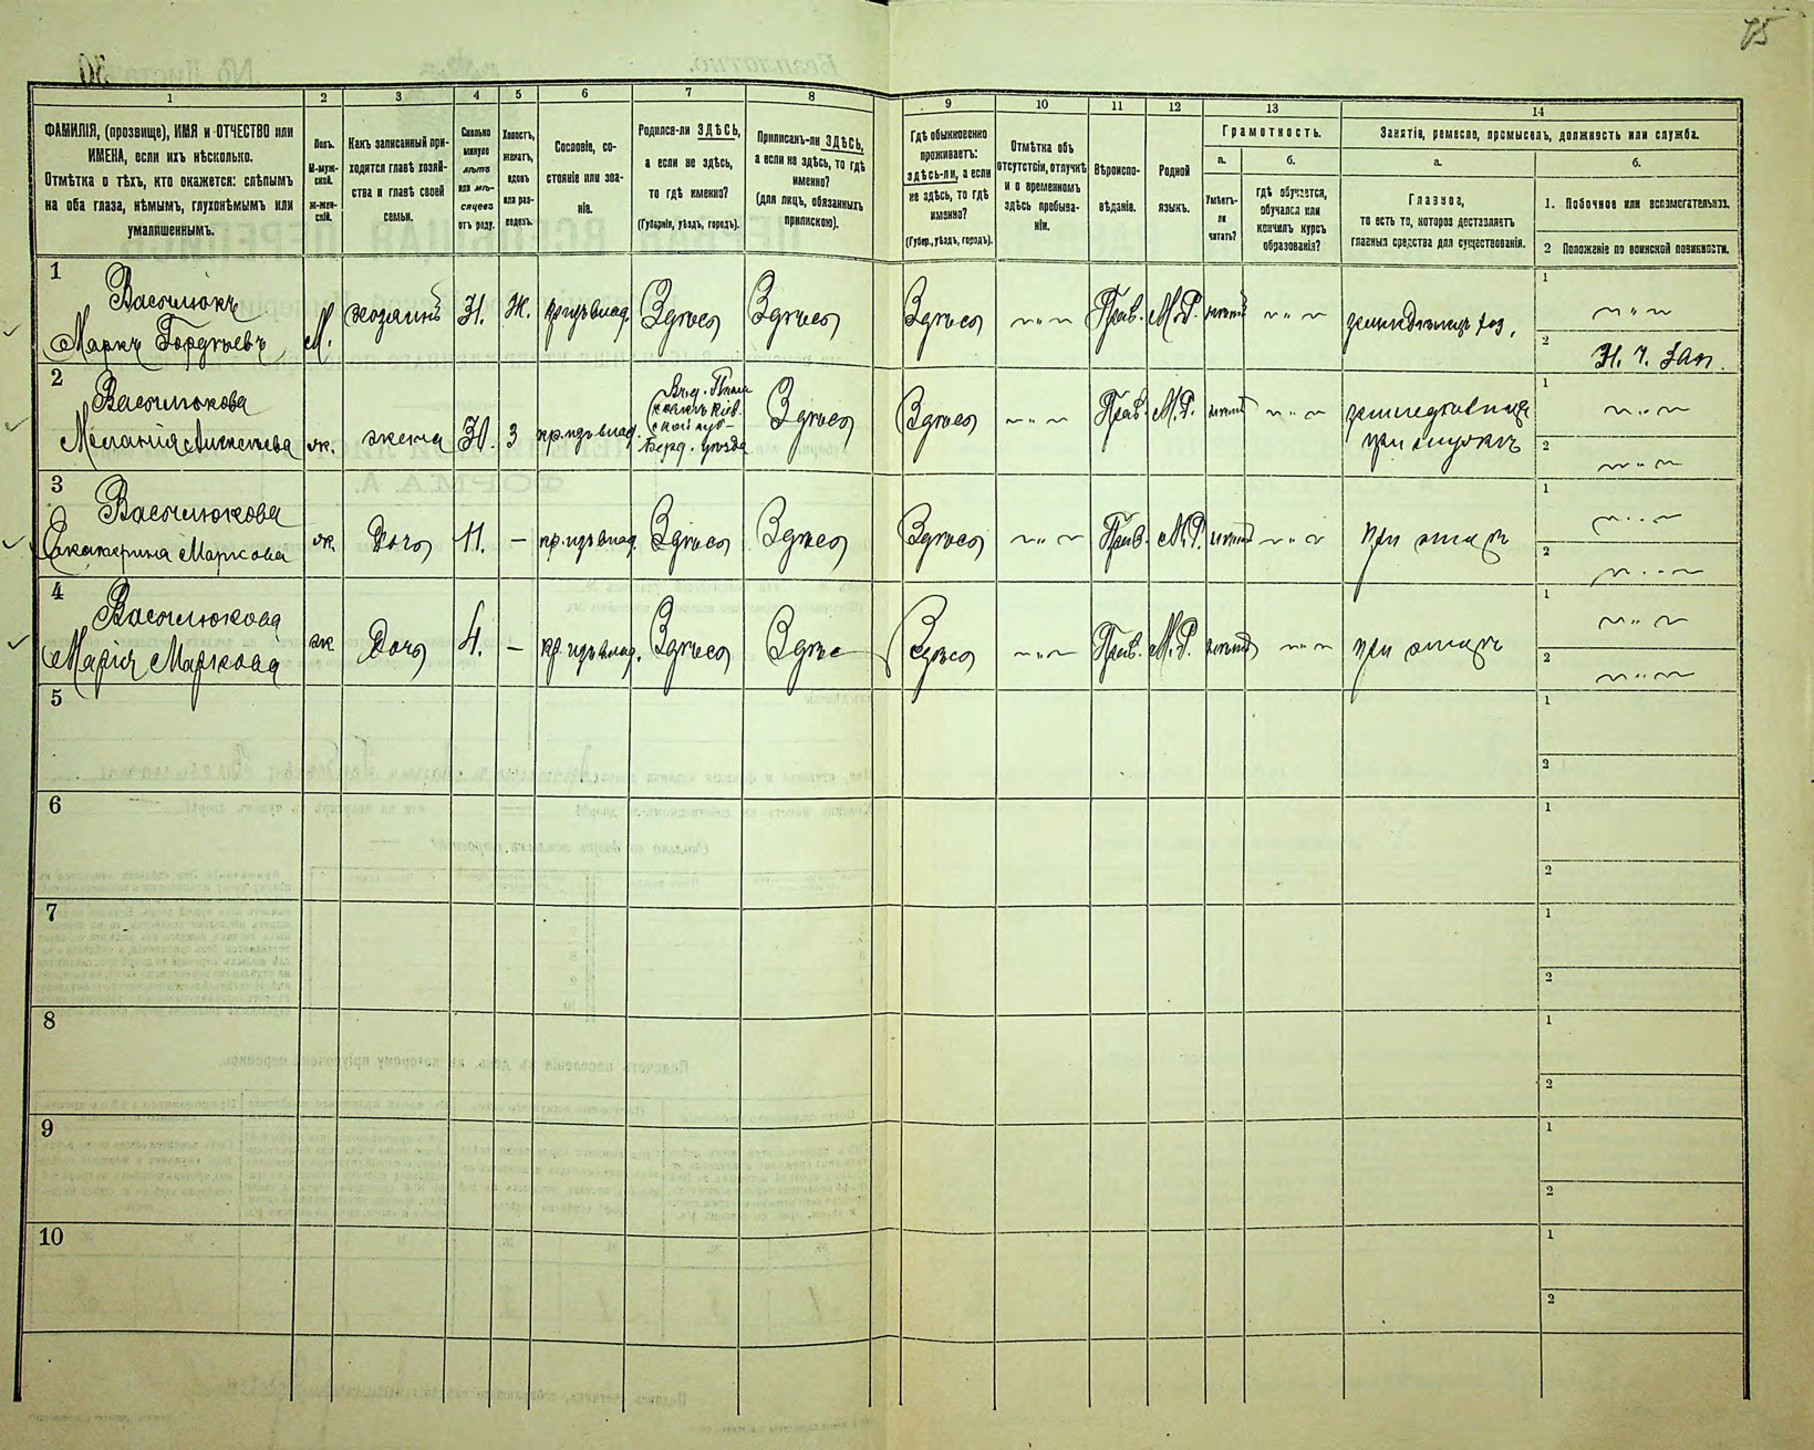 75
1 2 3 4 5 6 7 8 9 10 11 12 13 14
ФАМИЛІЯ, (прозвище), ИМЯ и ОТЧЕСТВО или
ИМЕНА, если ихъ нѣсколько.
Отмѣтка о тѣхъ, кто окажется: слѣпымъ
на оба глаза, нѣмымъ, глухонѣмымъ или
умалишеннымъ.
Полъ.
М-муж-
ской.
ж-жен-
скій.
Какъ записанный при-
ходится главѣ хозяй-
ства и главѣ своей
семьи.
Сколько
минуло
лѣтъ
или мѣ-
сяцевъ
отъ роду.
Холостъ,
женатъ,
вдовъ
или раз-
веденъ.
Сословіе, со-
стояніе или зва-
ніе.
Родился-ли ЗДѢСЬ,
а если не здѣсь,
то гдѣ именно?
(Губернія, уѣздъ, городъ).
Приписанъ-ли ЗДѢСЬ,
а если не здѣсь, то гдѣ
именно?
(для лицъ, обязанныхъ
припискою).
Гдѣ обыкновенно
проживаетъ:
здѣсь-ли, а если
не здѣсь, то гдѣ
именно?
(Губер., уѣздъ, городъ).
Отмѣтка объ
отсутствіи, отлучкѣ
и о временномъ
здѣсь пребыва-
ніи.
Вѣроиспо-
вѣданіе.
Родной
языкъ.
Грамотность.
а.
Умѣетъ-
ли
читать?
б.
гдѣ обучается,
обучался или
кончилъ курсъ
образованія?
Занятіе, ремесло, промыселъ, должность или служба.
а.
Главное,
то есть то, которое доставляетъ
главныя средства для существованія.
б.
1. Побочное или вспомогательное.
2 Положеніе по воинской повинности.
1
Василюкъ
Маркъ Гордѣевъ
М. хозяинъ 31. Ж. кр. изъ влад. Здѣсь Здѣсь Здѣсь Прав. М.Р.
земледѣлецъ хоз.
1
2
Н. Ч. Зап.
2
Василюкова
Меланія Алексѣева
ж. жена 30. З кр. изъ влад.
Берд. уѣзда
Здѣсь Здѣсь Прав. М.Р.
при мужѣ
1
2
3
Василюкова
Екатерина Маркова
ж. Дочь 11. — кр. изъ влад. Здѣсь Здѣсь Здѣсь Прав. М.Р.
при отцѣ
1
2
4
Василюкова
Марія Маркова
ж. Дочь 4. — кр. изъ влад. Здѣсь Здѣсь Здѣсь Прав. М.Р.
при отцѣ
1
2
5
1
2
6
1
2
7
1
2
8
1
2
9
1
2
10
1
2